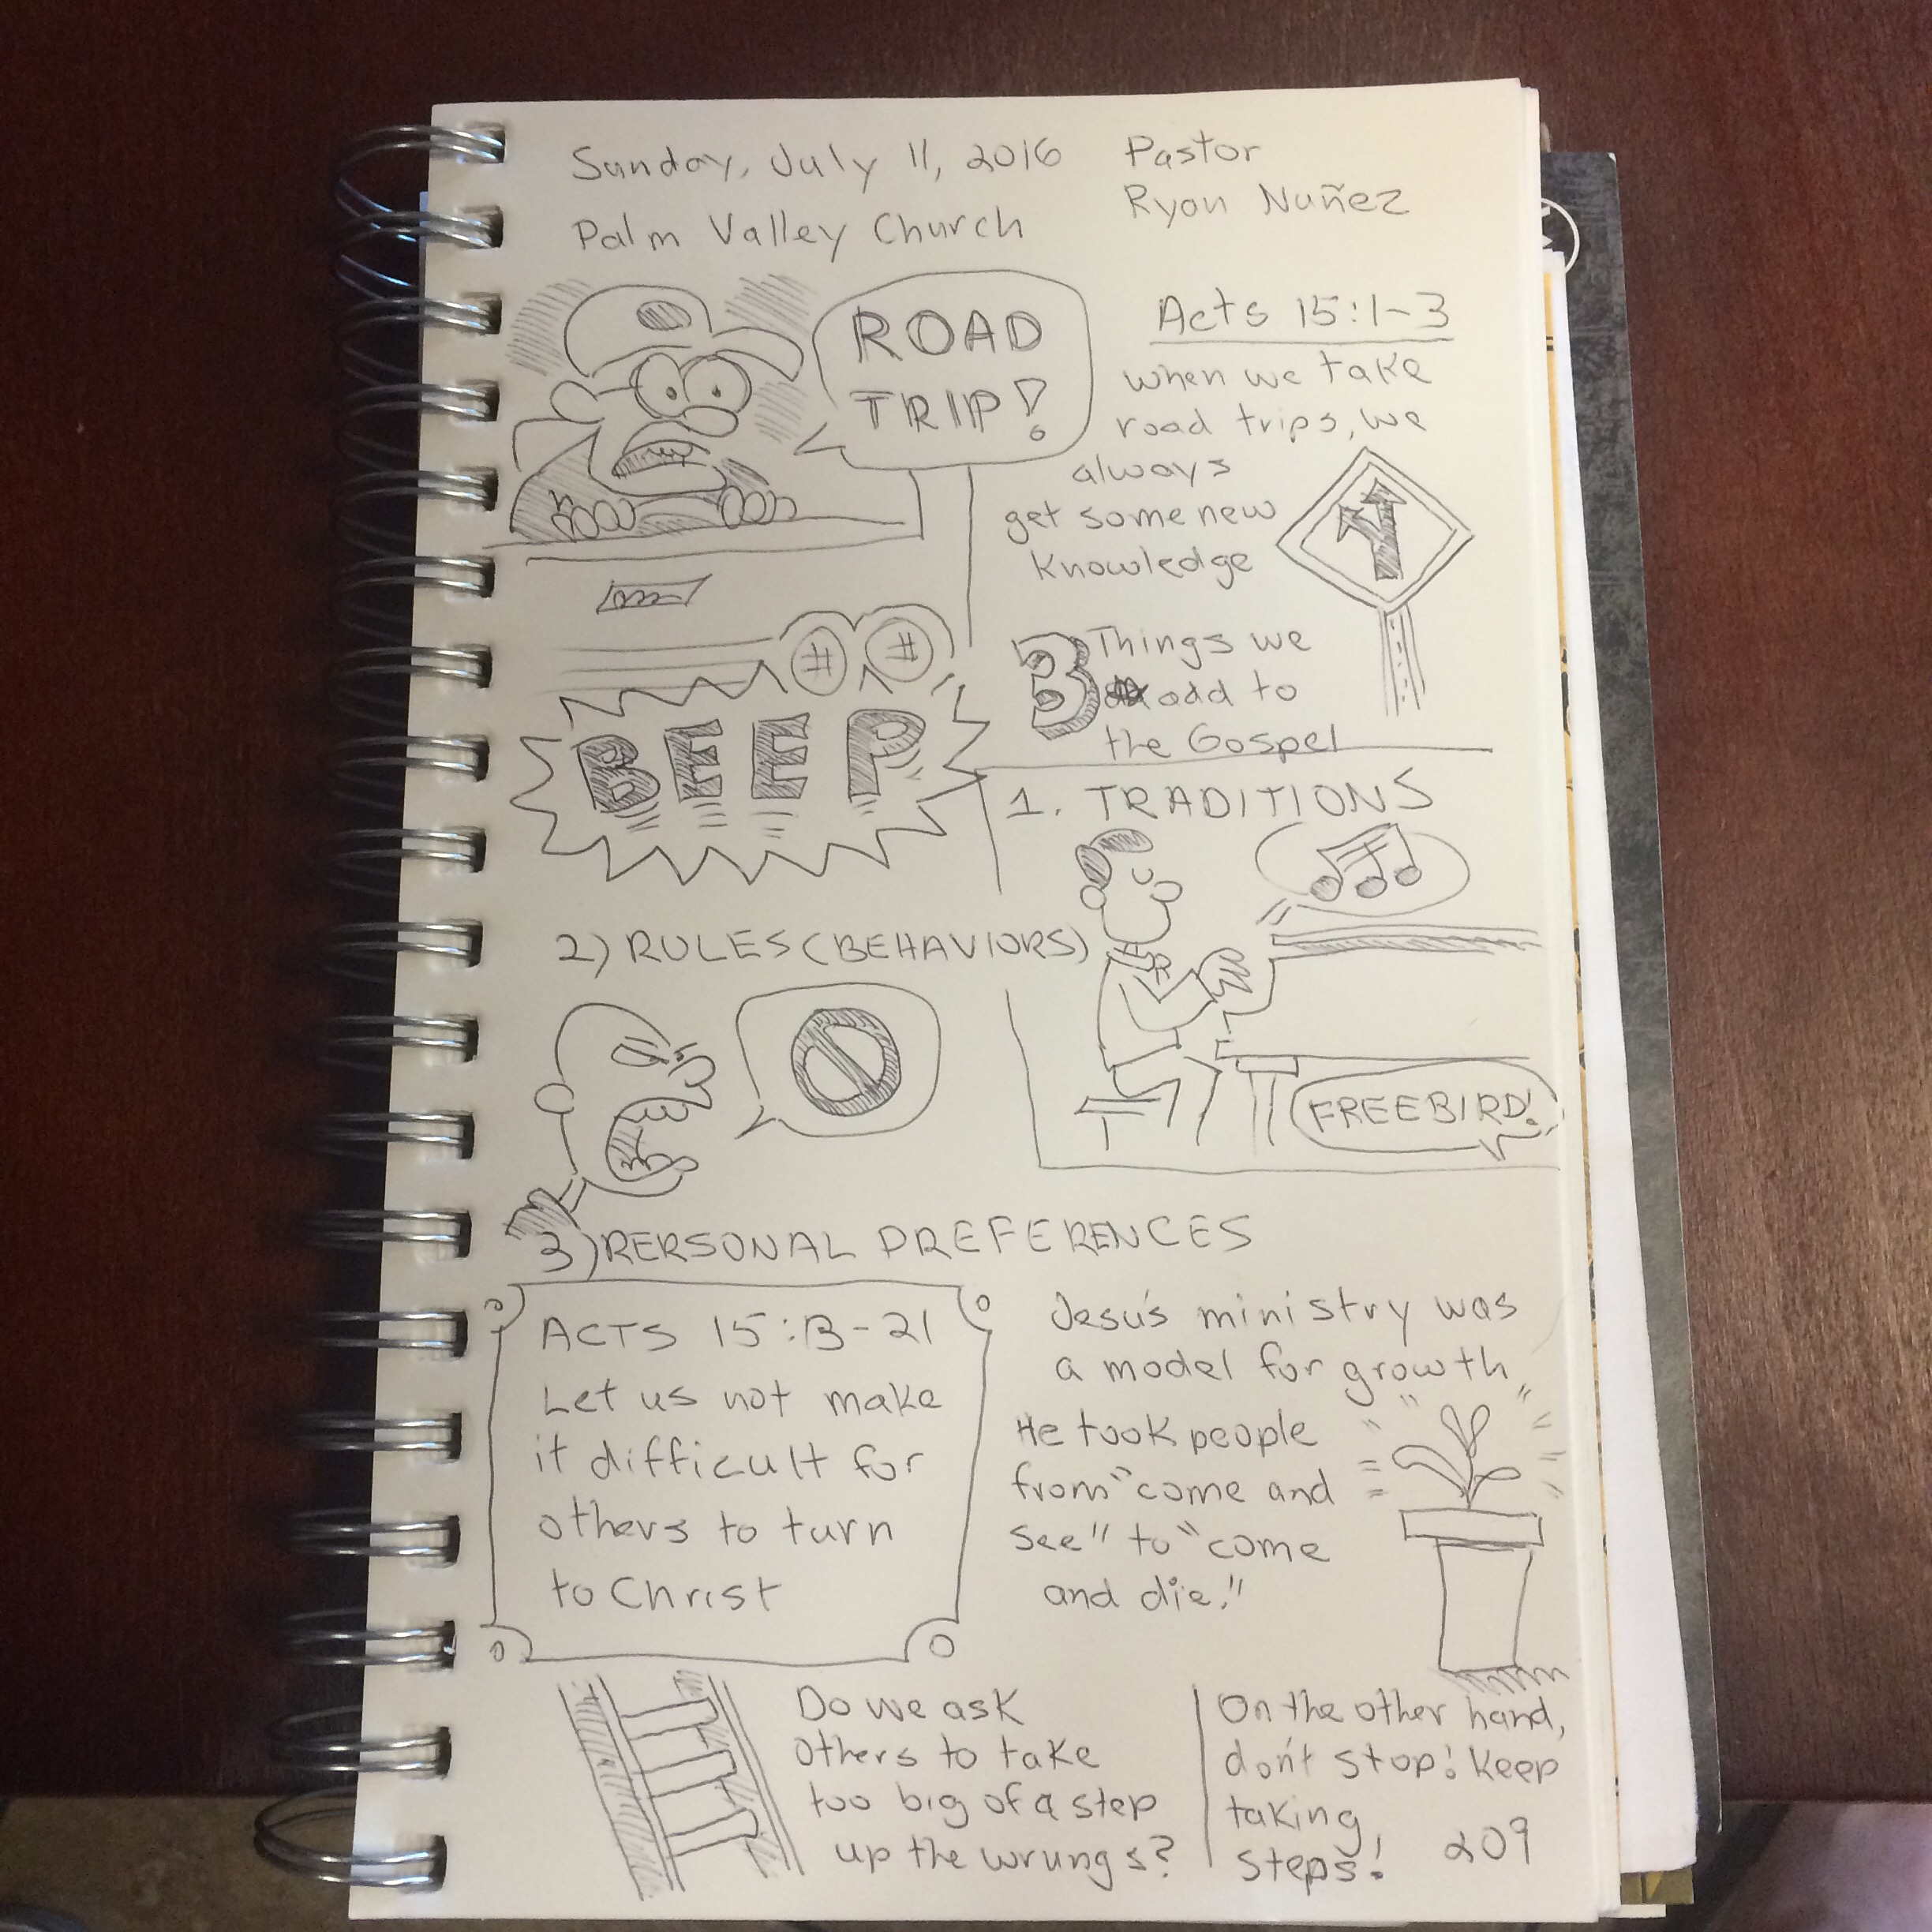 Sunday, July 11, 2016
Palm Valley Church
Pastor
Ryon Nuñez
ROAD
TRIP!
Acts 15:1-3
when we take
road trips, we
always
get some new
knowledge
BEEP
3 Things we
add to
the Gospel
1. TRADITIONS
FREEBIRD!
2) RULES (BEHAVIORS)
3) PERSONAL PREFERENCES
ACTS 15:13-21
Let us not make
it difficult for
others to turn
to Christ
Jesus's ministry was
a model for growth
He took people
from "come and
see" to "come
and die."
Do we ask
others to take
too big of a step
up the wrungs?
On the other hand,
don't stop! Keep
taking
steps!
209